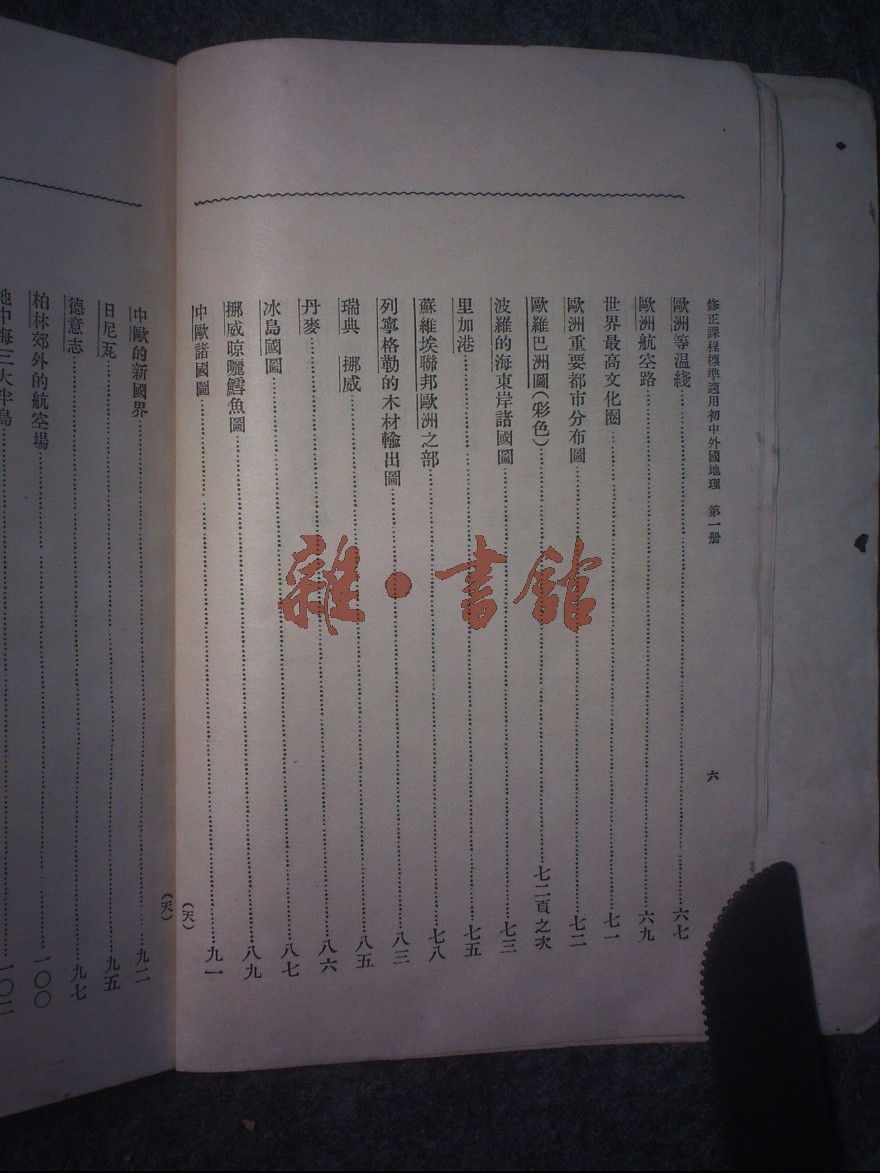 修正課程標準適用初中外國地理　第一册
六
歐洲等温綫……六七
歐洲航空路……六九
世界最高文化圈……七一
歐洲重要都市分布圖……七二
歐羅巴洲圖(彩色)……七二頁之次
波羅的海東岸諸國圖……七三
里加港……七五
蘇維埃聯邦歐洲之部……七八
列寧格勒的木材輸出圖……八三
瑞典　挪威……八五
丹麥……八六
冰島國圖……八七
挪威晾曬鱈魚圖……八九
中歐諸國圖……九一
(天)
(天)
中歐的新國界……九二
日尼瓦……九五
德意志……九七
柏林郊外的航空場……一〇〇
地中海三大半島……一〇二
雜·書館